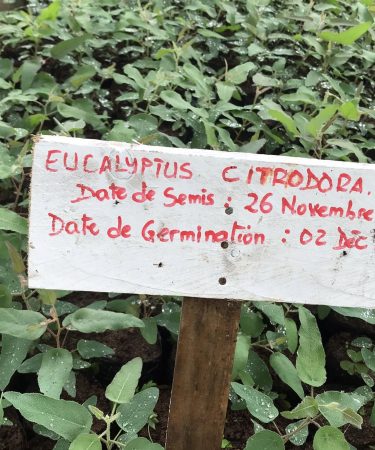 EUCALYPTUS CITRODORA.
Date de Semis : 26 Novembre
Date de Germination : 02 Déc